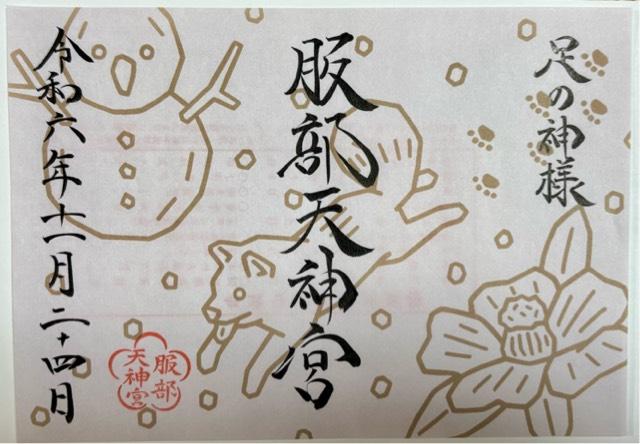 足の神様
服部天神宮
令和六年十一月二十四日
服部
天神宮